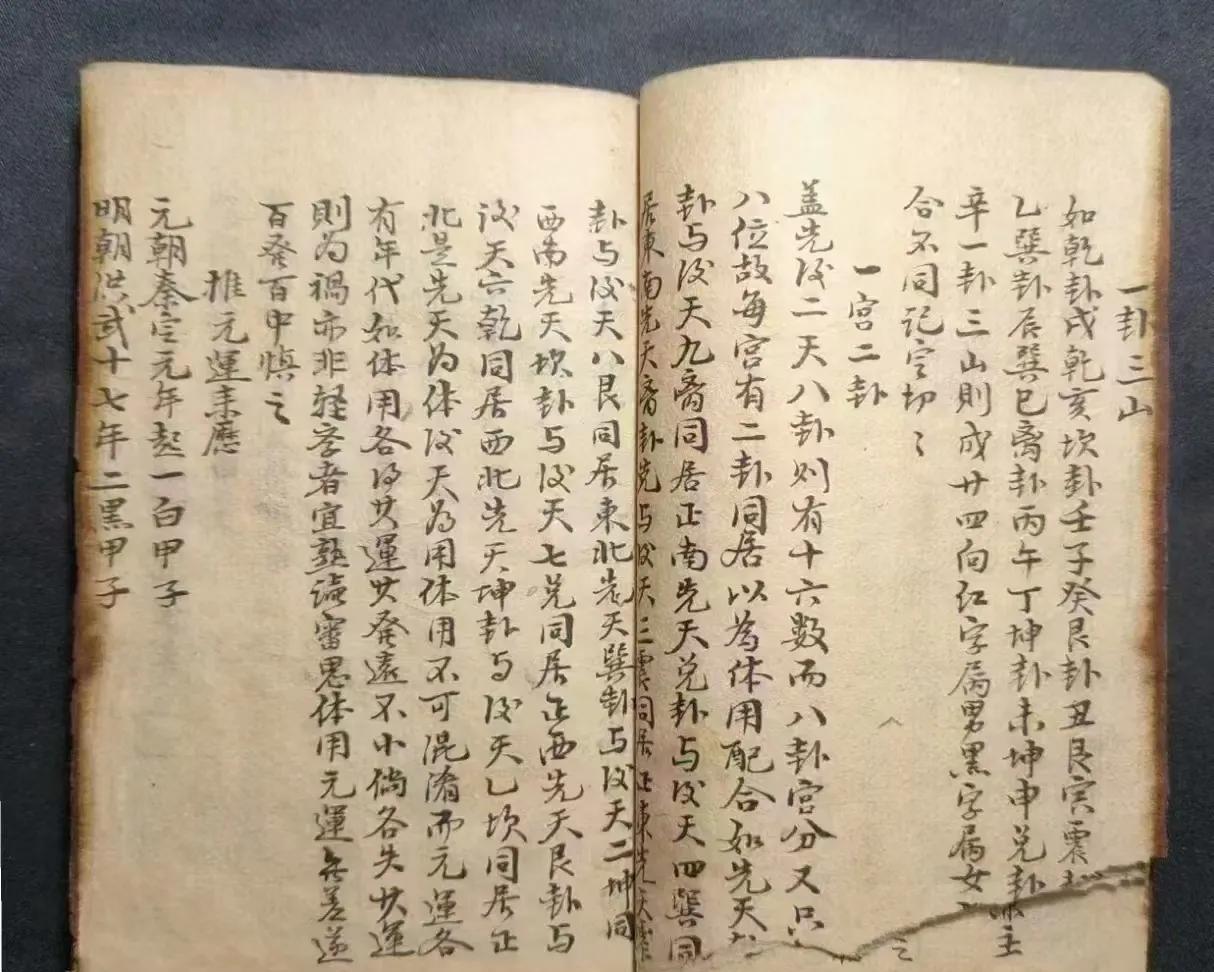 一卦三山
如乾卦戌乾亥坎卦壬子癸艮卦丑艮寅震
乙巽卦辰巽巳离卦丙午丁坤卦未坤申兑卦
辛一卦三山則成廿四向红字属男黑字属女
合不同记定切々
一宫二卦
盖先后二天八卦则有十六数而八卦宫分又只
八位故每宫有二卦同居以為体用配合如先天
卦与后天九离同居正南先天兑卦与后天四巽同
居東南先天离卦先与后天三震同居正東先天
卦与后天八艮同居東北先天巽卦与后天二坤同
西南先天坎卦与后天七兑同居正西先天艮卦与
后天六乾同居西北先天坤卦与后天乙坎同居正
北是先天為体后天為用体用不可混淆而元運各
有年代如体用各得其運其發遠不小倘各失其運
則為禍亦非軽学者宜熟读審思体用元運無差遂
百發百中慎之
推元運来歷
元朝泰定元年起一白甲子
明朝洪武十七年二黑甲子